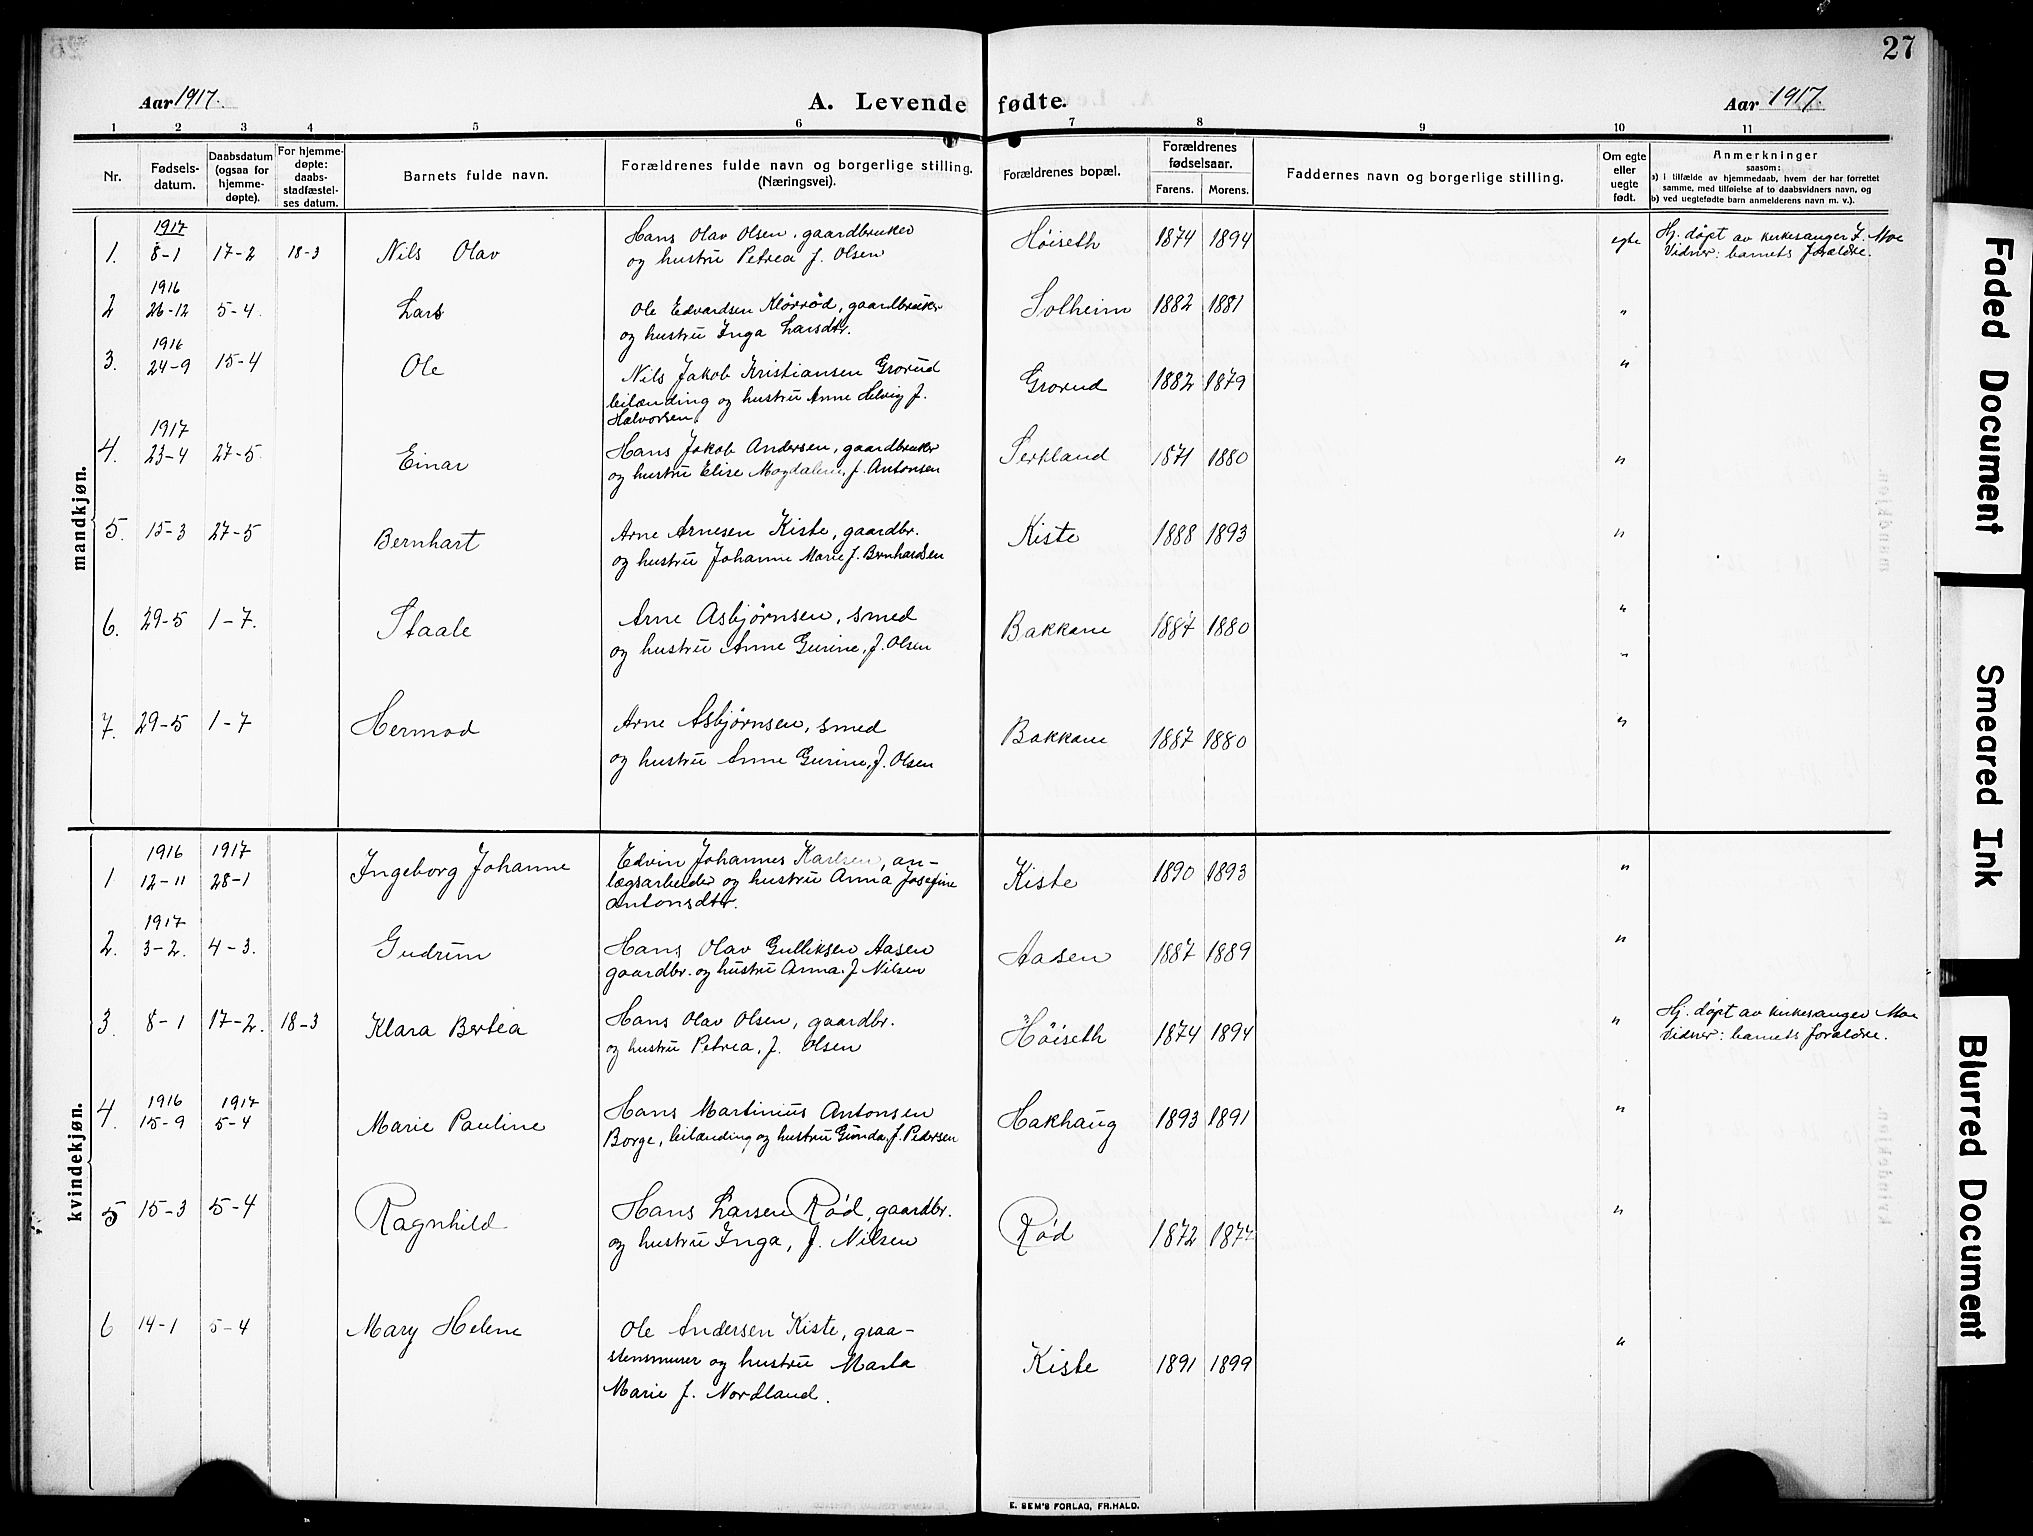 27
Aar 1917.
A. Levende fødte.
Aar 1917.
1 2 3 4 5 6 7 8 9 10 11
Nr.
Fødsels-
datum.
Daabsdatum
(ogsaa for
hjemme-
døpte).
For hjemme-
døpte:
daabs-
stadfæstel-
ses datum.
Barnets fulde navn.
Forældrenes fulde navn og borgerlige stilling.
(Næringsvei).
Forældrenes bopæl.
Forældrenes
fødselsaar.
Farens. Morens.
Faddernes navn og borgerlige stilling.
Om egte
eller
uegte
født.
Anmerkninger
saasom:
a) i tilfælde av hjemmedaab, hvem der har forrettet
samme, med tilføielse af to daabsvidners navn, og
b) ved uegtefødte barn anmelderens navn m. v.).
mandkjøn.
1917
Hans Olav Olsen, gaardbruker
1. 8-1 17-2 18-3 Nils Olav og hustru Petrea f. Olsen Høiseth 1874 1894 egte Hj. døpt av kirkesanger F. Moe
Vidner: barnets forældre.
1916
2 26-12 5-4. Lars Ole Edvardsen Klørrød, gaardbruker Solheim 1882 1881 "
og hustru Inga Larsdtr.
1916
3. 24-9 15-4 Ole Nils Jakob Kristiansen Grorud Grorud 1882 1879 "
leilænding og hustru Anne Helvig f.
Halvorsen
1917
4. 23-4 27-5. Einar Hans Jakob Andersen, gaardbruker Serkland 1871 1880 "
og hustru Elise Magdalene, f. Antonsen
5. 15-3 27-5 Bernhart Arne Arnesen Kiste, gaardbr. Kiste 1888 1893 "
og hustru Johanne Marie f. Bernhardsen
6. 29-5 1-7. Staale Arne Asbjørnsen, smed Bakkane 1887 1880 "
og hustru Anne Gurine, f. Olsen "
7. 29-5 1-7 Hermod Arne Asbjørnsen, smed Bakkane 1887 1880 "
og hustru Anne Gurine, f. Olsen
kvindekjøn.
1916 1917
1 12-11 28-1 Ingeborg Johanne Edvin Johannes Karlsen, an- Kiste 1890 1893 "
lægsarbeider og hustru Anna Josefine
Antonsdtr.
1917
2. 3-2. 4-3. Gudrun Hans Olav Gulliksen Aasen Aasen 1887 1889 "
gaardbr. og hustru Anna f. Nilsen
3. 8-1 17-2. 18-3 Klara Bertea Hans Olav Olsen, gaardbr. Høiseth 1874 1894 " Hj. døpt av kirkesanger Moe
og hustru Petrea, f. Olsen Vidner: barnets forældre.
1916 1917
4. 15-9 5-4 Marie Pauline Hans Martinius Antonsen Hakhaug 1893 1891 "
Borge, leilænding og hustru Gunda f. Pedersen
5 15-3 5-4 Ragnhild Hans Larsen Rød, gaardbr. Rød 1872 1877 "
og hustru Inga, f. Nilsen
6 14-1 5-4 Mary Helene Ole Andersen Kiste, graa- Kiste 1891 1899 "
stensmurer og hustru Marta
Marie f. Nordland.
E. SEM'S FORLAG, FR.HALD.
Faded Document
Smeared Ink
Blurred Document